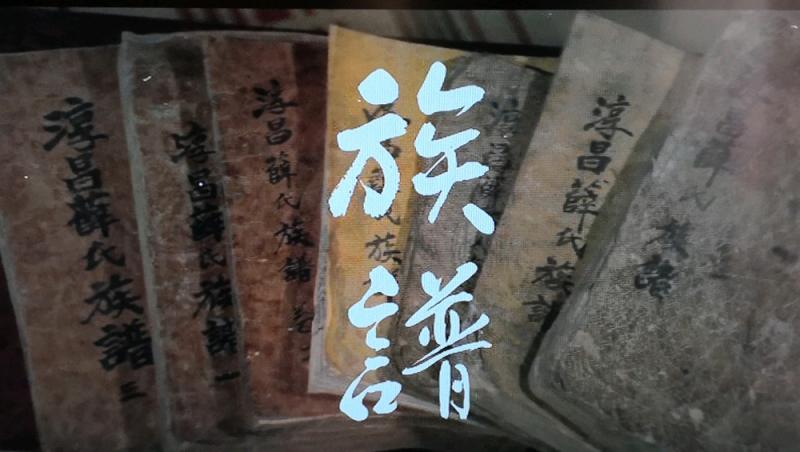 淳昌薛氏族譜 三
淳昌薛氏族譜 一
淳昌薛氏族譜 卷
族譜
淳昌薛氏族譜
昌薛氏族譜